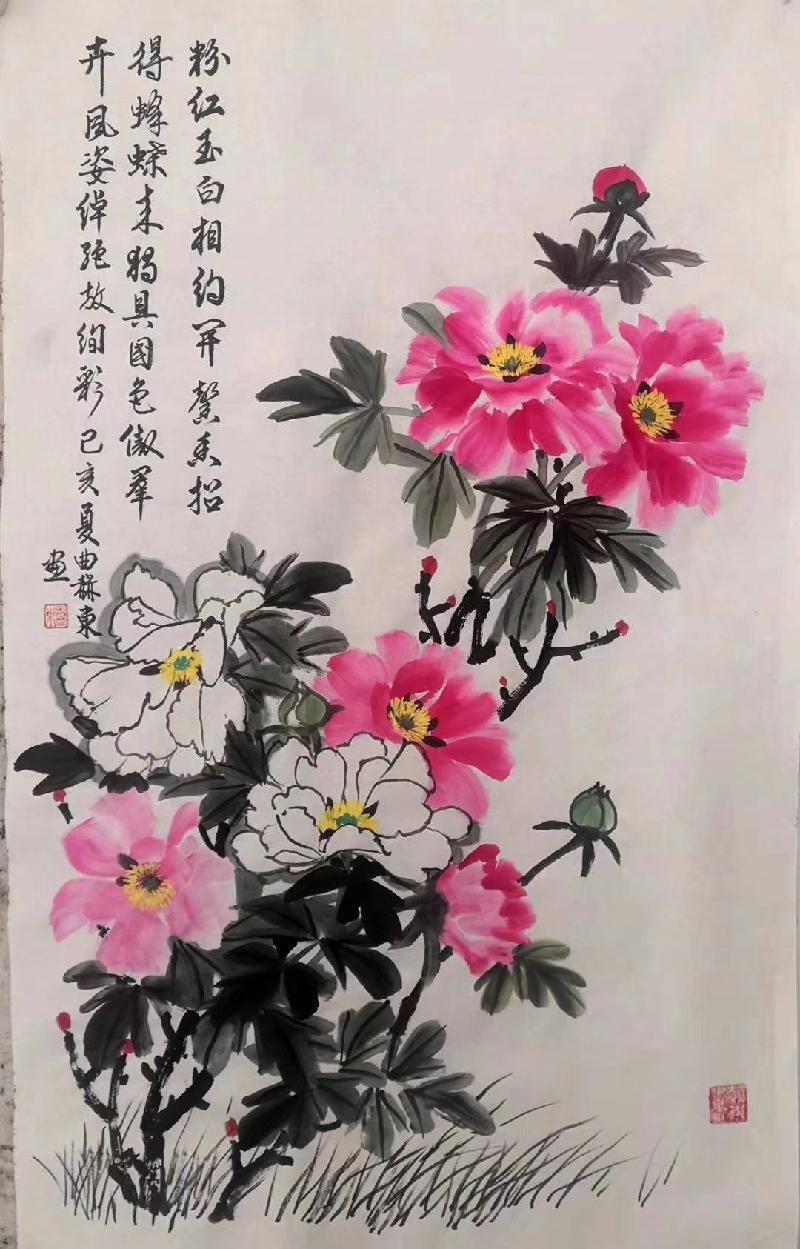 粉红玉白相约开馨香招
得蜂蝶来独具国色傲群
卉风姿绰绝放绚彩 己亥夏曲赫東
画